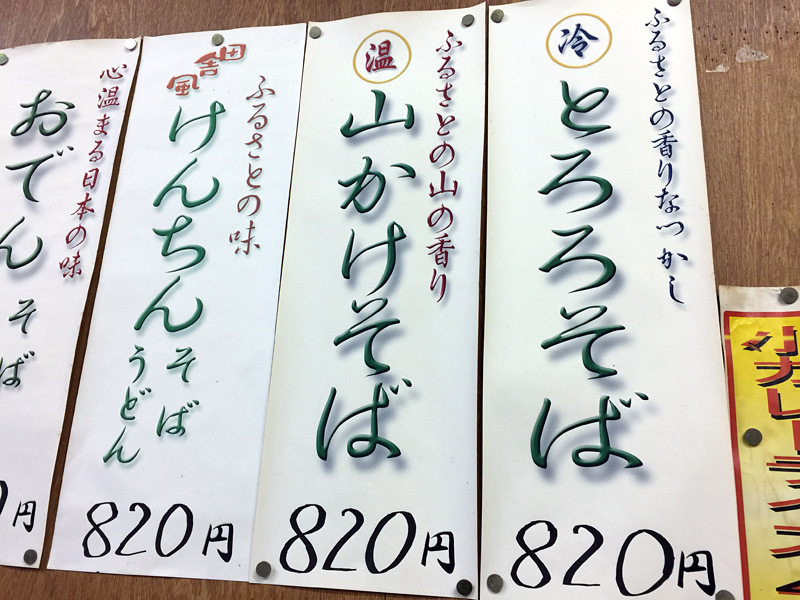 冷
ふるさとの香りなつかし
とろろそば
820円
温
ふるさとの山の香り
山かけそば
820円
田舎風
ふるさとの味
けんちん
そば
うどん
820円
心温まる日本の味
おでん
そば
0円
小カレー